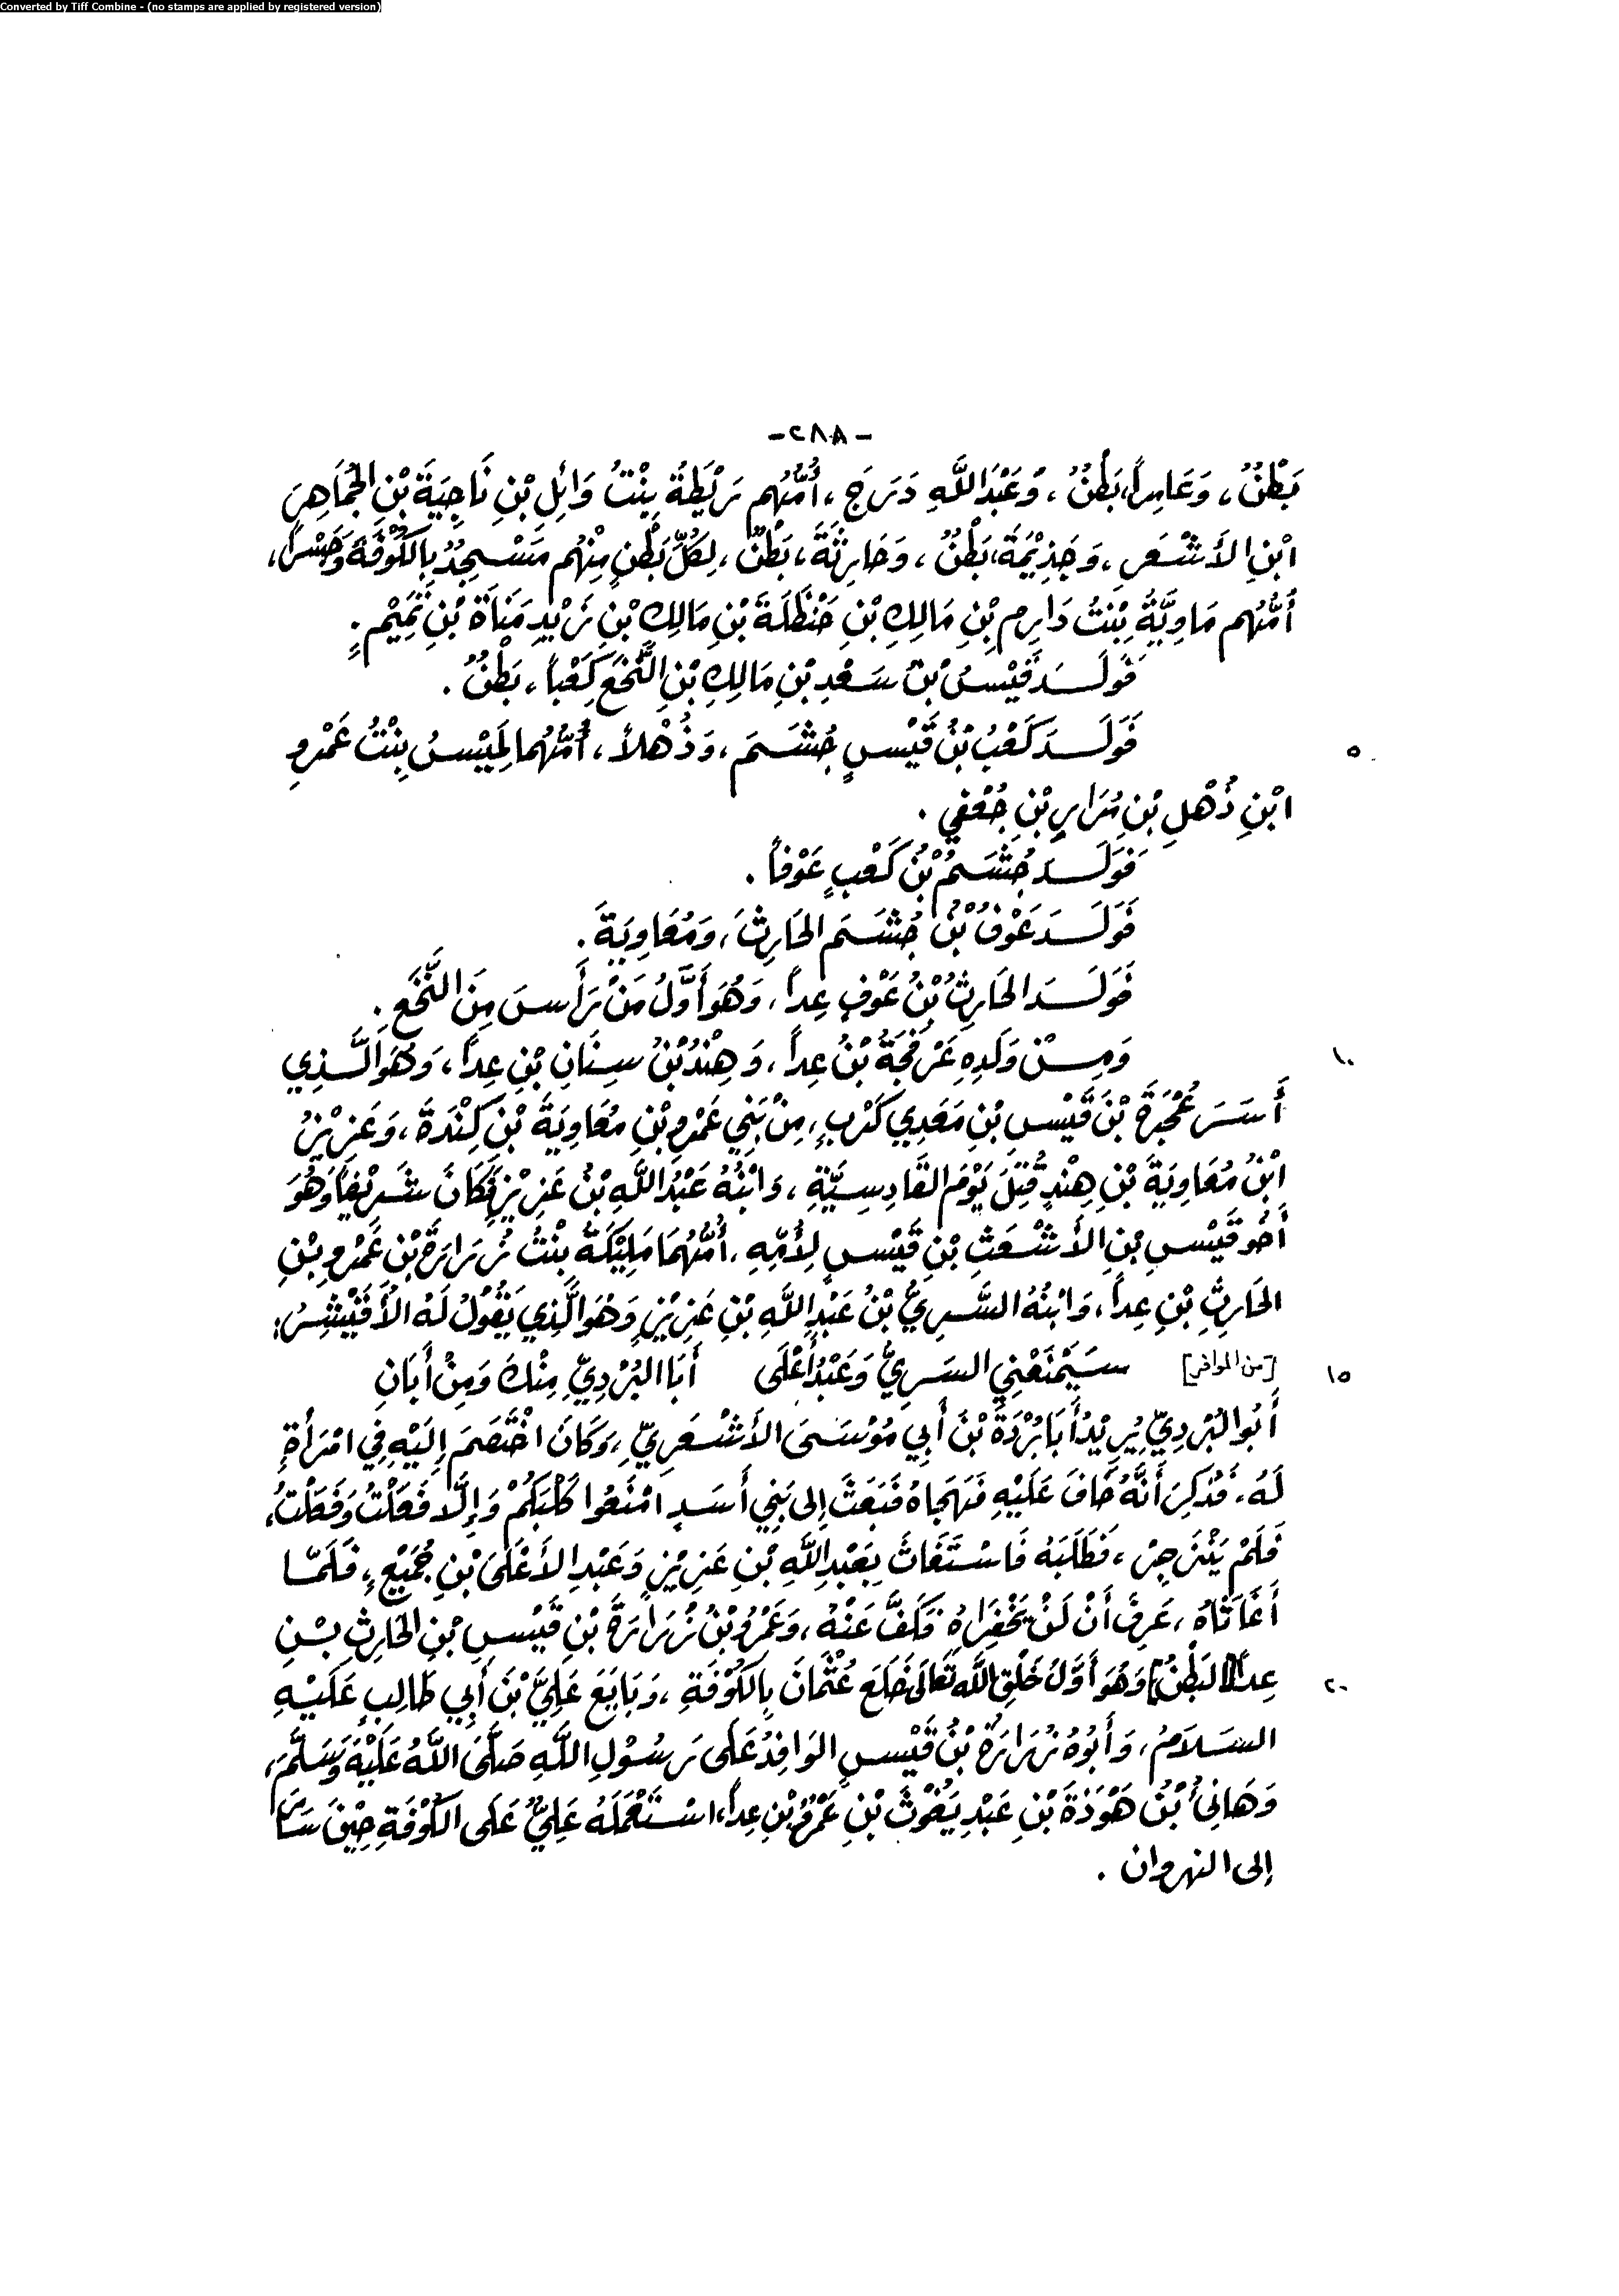 Converted by Tiff Combine - (no stamps are applied by registered version)
-٢٨٨-
بَطْنٌ، وَعَامِراً، بَطْنٌ، وَعَبْدَ اللَّهِ دَرَجَ، أُمُّهُم رَيْطَةُ بِنْتُ وَائِلِ بْنِ نَاجِيَةَ بْنِ الجُمَاهِرِ
ابْنِ الأَشْعَرِ، وَجَذِيْمَةَ، بَطْنٌ، وَحَارِثَةَ، بَطْنٌ، لِكُلِّ بَطْنٍ مِنْهُم مَسْجِدٌ بِالكُوْفَةِ وَجَسْراً،
أُمُّهُم مَاوِيَّةُ بِنْتُ دَارِمِ بْنِ مَالِكِ بْنِ حَنْظَلَةَ بْنِ مَالِكِ بْنِ زَيْدِ مَنَاةَ بْنِ تَمِيْمٍ.
فَوَلَدَ قَيْسُ بْنُ سَعْدِ بْنِ مَالِكِ بْنِ النَّخَعِ كَعْباً، بَطْنٌ.
٥ فَوَلَدَ كَعْبُ بْنُ قَيْسٍ جُشَمَ، وَذُهْلاً، أُمُّهُما لَمِيْسُ بِنْتُ عَمْرِو
ابْنِ ذُهْلِ بْنِ مُرَارِ بْنِ جُعْفِي.
فَوَلَدَ جُشَمُ بْنُ كَعْبٍ عَوْفاً.
فَوَلَدَ عَوْفُ بْنُ جُشَمَ الحَارِثَ، وَمُعَاوِيَةَ.
فَوَلَدَ الحَارِثُ بْنُ عَوْفٍ عِداً، وَهُوَ أَوَّلُ مَنْ رَأَسَ مِنَ النَّخَعِ.
١٠ وَمِنْ وَلَدِهِ عَرْفَجَةُ بْنُ عِداً، وَهِنْدُ بْنُ سِنَانِ بْنِ عِداً، وَهُوَ الَّذِي
أَسَرَ حُجْرَ بْنَ قَيْسِ بْنِ مَعَدِي كَرْبٍ، مِنْ بَنِي عَمْرِو بْنِ مُعَاوِيَةَ بْنِ كِنْدَةَ، وَعَزِيْزُ
ابْنُ مُعَاوِيَةَ بْنِ هِنْدٍ قُتِلَ يَوْمَ القَادِسِيَّةِ، وَابْنُهُ عَبْدُ اللَّهِ بْنُ عَزِيْزٍ فَكَانَ شَرِيْفاً وَهُوَ
أَخُو قَيْسِ بْنِ الأَشْعَثِ بْنِ قَيْسٍ لِأُمِّهِ، أُمُّهُمَا مُلَيْكَةُ بِنْتُ زُرَارَةَ بْنِ عَمْرِو بْنِ
الحَارِثِ بْنِ عِداً، وَابْنُهُ السَّرِيُّ بْنُ عَبْدِ اللَّهِ بْنِ عَزِيْزٍ وَهُوَ الَّذِي يَقُوْلُ لَهُ الأُقَيْشِرُ:
١٥ [من الوافر] سَيَمْنَعُنِي السَرِيُّ وَعَبْدُ أَعْلَى أَبَا البُرْدِيِّ مِنْكَ وَمِنْ أَبَانِ
أَبُو البُرْدِيِّ يُرِيْدُ أَبَا بُرْدَةَ بْنَ أَبِي مُوْسَى الأَشْعَرِيِّ، وَكَانَ اخْتَصَمَ إِلَيْهِ فِي امْرَأَةٍ
لَهُ، فَذُكِرَ أَنَّهُ حَافَ عَلَيْهِ فَهَجَاهُ فَبَعَثَ إِلى بَنِي أَسَدٍ امْنَعُوا كَلْبَكُمْ وَإِلَّا فَعَلْتُ وَفَعَلْتُ،
فَلَمْ يَنْزَجِرْ، فَطَلَبَهُ فَاسْتَغَاثَ بِعَبْدِ اللَّهِ بْنِ عَزِيْزٍ وَعَبْدِ الأَعْلَى بْنِ جُمَيْعٍ، فَلَمَّا
أَغَاثَاهُ، عَرِفَ أَنْ لَنْ يَخْفِرَاهُ فَكَفَّ عَنْهُ، وَعَمْرُو بْنُ زُرَارَةَ بْنِ قَيْسِ بْنِ الحَارِثِ بْنِ
٢٠ عِداً [البَطْنُ] وَهُوَ أَوَّلُ خَلْقِ اللَّهِ تَعَالَى خَلَعَ عُثْمَانَ بِالكُوْفَةِ، وَبَايَعَ عَلِيَّ بْنَ أَبِي طَالِبٍ عَلَيْهِ
السَلَامُ، وَأَبُوْهُ زُرَارَةُ بْنُ قَيْسٍ الوَافِدُ عَلَى رَسُوْلِ اللَّهِ صَلَّى اللَّهُ عَلَيْهِ وَسَلَّمَ،
وَهَانِئُ بْنُ هَوْذَةَ بْنِ عَبْدِ يَغُوْثَ بْنِ عَمْرِو بْنِ عِداً، اسْتَعْمَلَهُ عَلِيٌّ عَلَى الكُوْفَةِ حِيْنَ سَارَ
إلى النهروان.